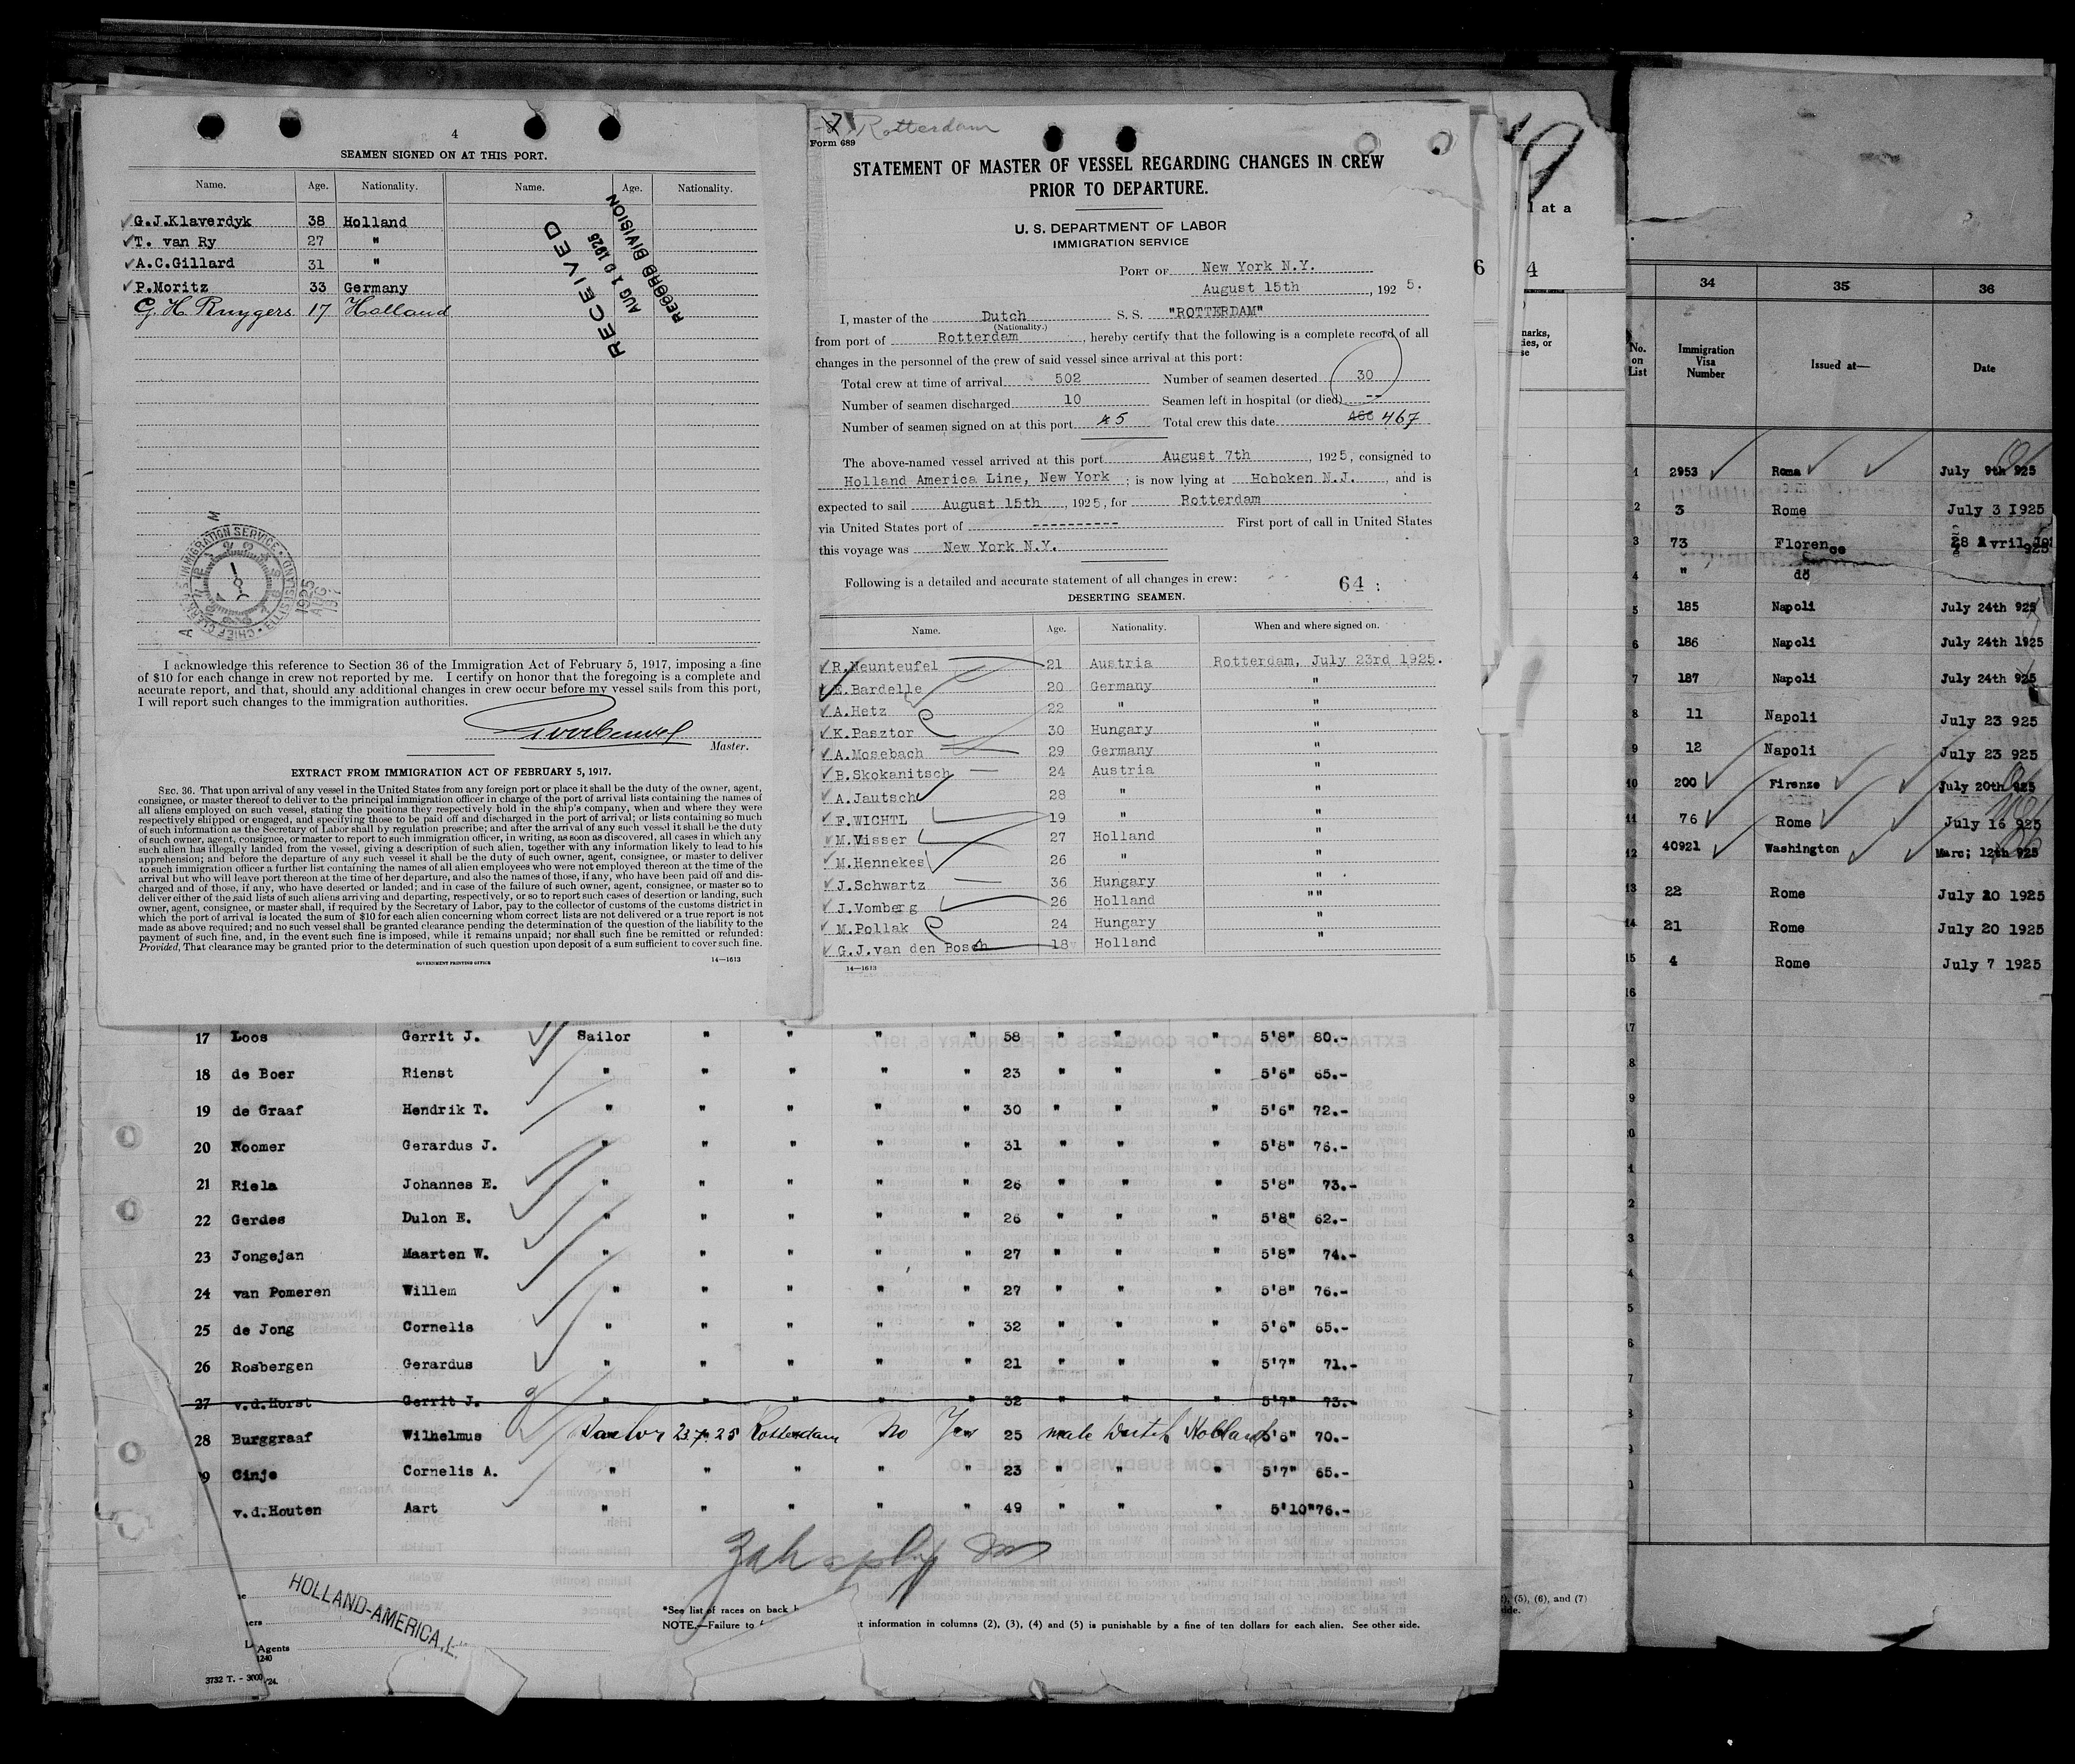 4
SEAMEN SIGNED ON AT THIS PORT.
Name. Age. Nationality. Name. Age. Nationality.
G.J.Klaverdyk 38 Holland
T. van Ry 27 "
A.C.Gillard 31 "
P.Moritz 33 Germany
G. H. Ruygers 17 Holland
RECEIVED
AUG 19 1925
RECORD DIVISION
CHIEF CLERK'S
IMMIGRATION SERVICE
1925
AUG
I acknowledge this reference to Section 36 of the Immigration Act of February 5, 1917, imposing a fine
of $10 for each change in crew not reported by me. I certify on honor that the foregoing is a complete and
accurate report, and that, should any additional changes in crew occur before my vessel sails from this port,
I will report such changes to the immigration authorities.
Master.
EXTRACT FROM IMMIGRATION ACT OF FEBRUARY 5, 1917.
SEC. 36. That upon arrival of any vessel in the United States from any foreign port or place it shall be the duty of the owner, agent,
consignee, or master thereof to deliver to the principal immigration officer in charge of the port of arrival lists containing the names of
all aliens employed on such vessel, stating the positions they respectively hold in the ship's company, when and where they were
respectively shipped or engaged, and specifying those to be paid off and discharged in the port of arrival; or lists containing so much
of such information as the Secretary of Labor shall by regulation prescribe; and after the arrival of any such vessel it shall be the duty
of such owner, agent, consignee, or master to report to such immigration officer, in writing, as soon as discovered, all cases in which any
such alien has illegally landed from the vessel, giving a description of such alien, together with any information likely to lead to his
apprehension; and before the departure of any such vessel it shall be the duty of such owner, agent, consignee, or master to deliver
to such immigration officer a further list containing the names of all alien employees who were not employed thereon at the time of the
arrival but who will leave port thereon at the time of her departure, and also the names of those, if any, who have been paid off and dis-
charged and of those, if any, who have deserted or landed; and in case of the failure of such owner, agent, consignee, or master so to
deliver either of the said lists of such aliens arriving and departing, respectively, or so to report such cases of desertion or landing, such
owner, agent, consignee, or master shall, if required by the Secretary of Labor, pay to the collector of customs of the customs district in
which the port of arrival is located the sum of $10 for each alien concerning whom correct lists are not delivered or a true report is not
made as above required; and no such vessel shall be granted clearance pending the determination of the question of the liability to the
payment of such fine, and, in the event such fine is imposed, while it remains unpaid; nor shall such fine be remitted or refunded:
Provided, That clearance may be granted prior to the determination of such question upon deposit of a sum sufficient to cover such fine.
GOVERNMENT PRINTING OFFICE 14—1613
Rotterdam
Form 689
STATEMENT OF MASTER OF VESSEL REGARDING CHANGES IN CREW
PRIOR TO DEPARTURE.
U. S. DEPARTMENT OF LABOR
IMMIGRATION SERVICE
PORT OF New York N.Y.
August 15th, 1925.
I, master of the Dutch S. S. "ROTTERDAM"
(Nationality.)
from port of Rotterdam, hereby certify that the following is a complete record of all
changes in the personnel of the crew of said vessel since arrival at this port:
Total crew at time of arrival 502 Number of seamen deserted 30
Number of seamen discharged 10 Seamen left in hospital (or died) --
Number of seamen signed on at this port 5 Total crew this date 466 467
The above-named vessel arrived at this port August 7th, 1925, consigned to
Holland America Line, New York; is now lying at Hoboken N.J., and is
expected to sail August 15th, 1925, for Rotterdam
via United States port of ---------- First port of call in United States
this voyage was New York N.Y.
Following is a detailed and accurate statement of all changes in crew: 64 :
DESERTING SEAMEN.
Name. Age. Nationality. When and where signed on.
R.Neunteufel 21 Austria Rotterdam, July 23rd 1925.
E.Bardelle 20 Germany "
A.Hetz 22 " "
K.Pasztor 30 Hungary "
A.Mosebach 29 Germany "
B.Skokanitsch 24 Austria "
A.Jautsch 28 " "
F.WICHTL 19 " "
M.Visser 27 Holland "
M.Hennekes 26 " "
J.Schwartz 36 Hungary "
J.Vomberg 26 Holland ""
M.Pollak 24 Hungary "
G.J.van den Bosch 18 Holland "
14—1613
17 Loos Gerrit J. Sailor " " " " 58 " " " 5'8" 80.-
18 de Boer Rienst " " " " " 23 " " " 5'6" 65.-
19 de Graaf Hendrik T. " " " " " 30 " " " 5'6" 72.-
20 Roomer Gerardus J. " " " " " 31 " " " 5'8" 76.-
21 Riela Johannes E. " " " " " 26 " " " 5'8" 73.-
22 Gerdes Dulon E. " " " " " 26 " " " 5'8" 62.-
23 Jongejan Maarten W. " " " " " 27 " " " 5'8" 74.-
24 van Pomeren Willem " " " " " 27 " " " 5'8" 76.-
25 de Jong Cornelis " " " " " 32 " " " 5'6" 65.-
26 Rosbergen Gerardus " " " " " 21 " " " 5'7" 71.-
27 v.d.Horst Gerrit J. " " " " " 32 " " " 5'7" 73.-
28 Burggraaf Wilhelmus Sailor 23.7.25 Rotterdam No Yes 25 male Dutch Holland 5'6" 70.-
9 Cinje Cornelis A. " " " " " 23 " " " 5'7" 65.-
v.d.Houten Aart " " " " " 49 " " " 5'10" 76.-
HOLLAND-AMERICA
Agents
1240
3732 T. - 3000 '24.
*See list of races on back
NOTE.—Failure to
information in columns (2), (3), (4) and (5) is punishable by a fine of ten dollars for each alien. See other side.
9
at a
6 4
(5), (6), and (7)
34 35 36
No. on List Immigration Visa Number Issued at— Date
1 2953 Roma July 9th 925
2 3 Rome July 3 1925
3 73 Florence 28 Avril 1925
4 " do
5 185 Napoli July 24th 925
6 186 Napoli July 24th 1925
7 187 Napoli July 24th 925
8 11 Napoli July 23 925
9 12 Napoli July 23 925
10 200 Firenze July 20th 925
11 76 Rome July 16 925
12 40921 Washington Marc; 12th 925
13 22 Rome July 20 1925
14 21 Rome July 20 1925
15 4 Rome July 7 1925
16
17